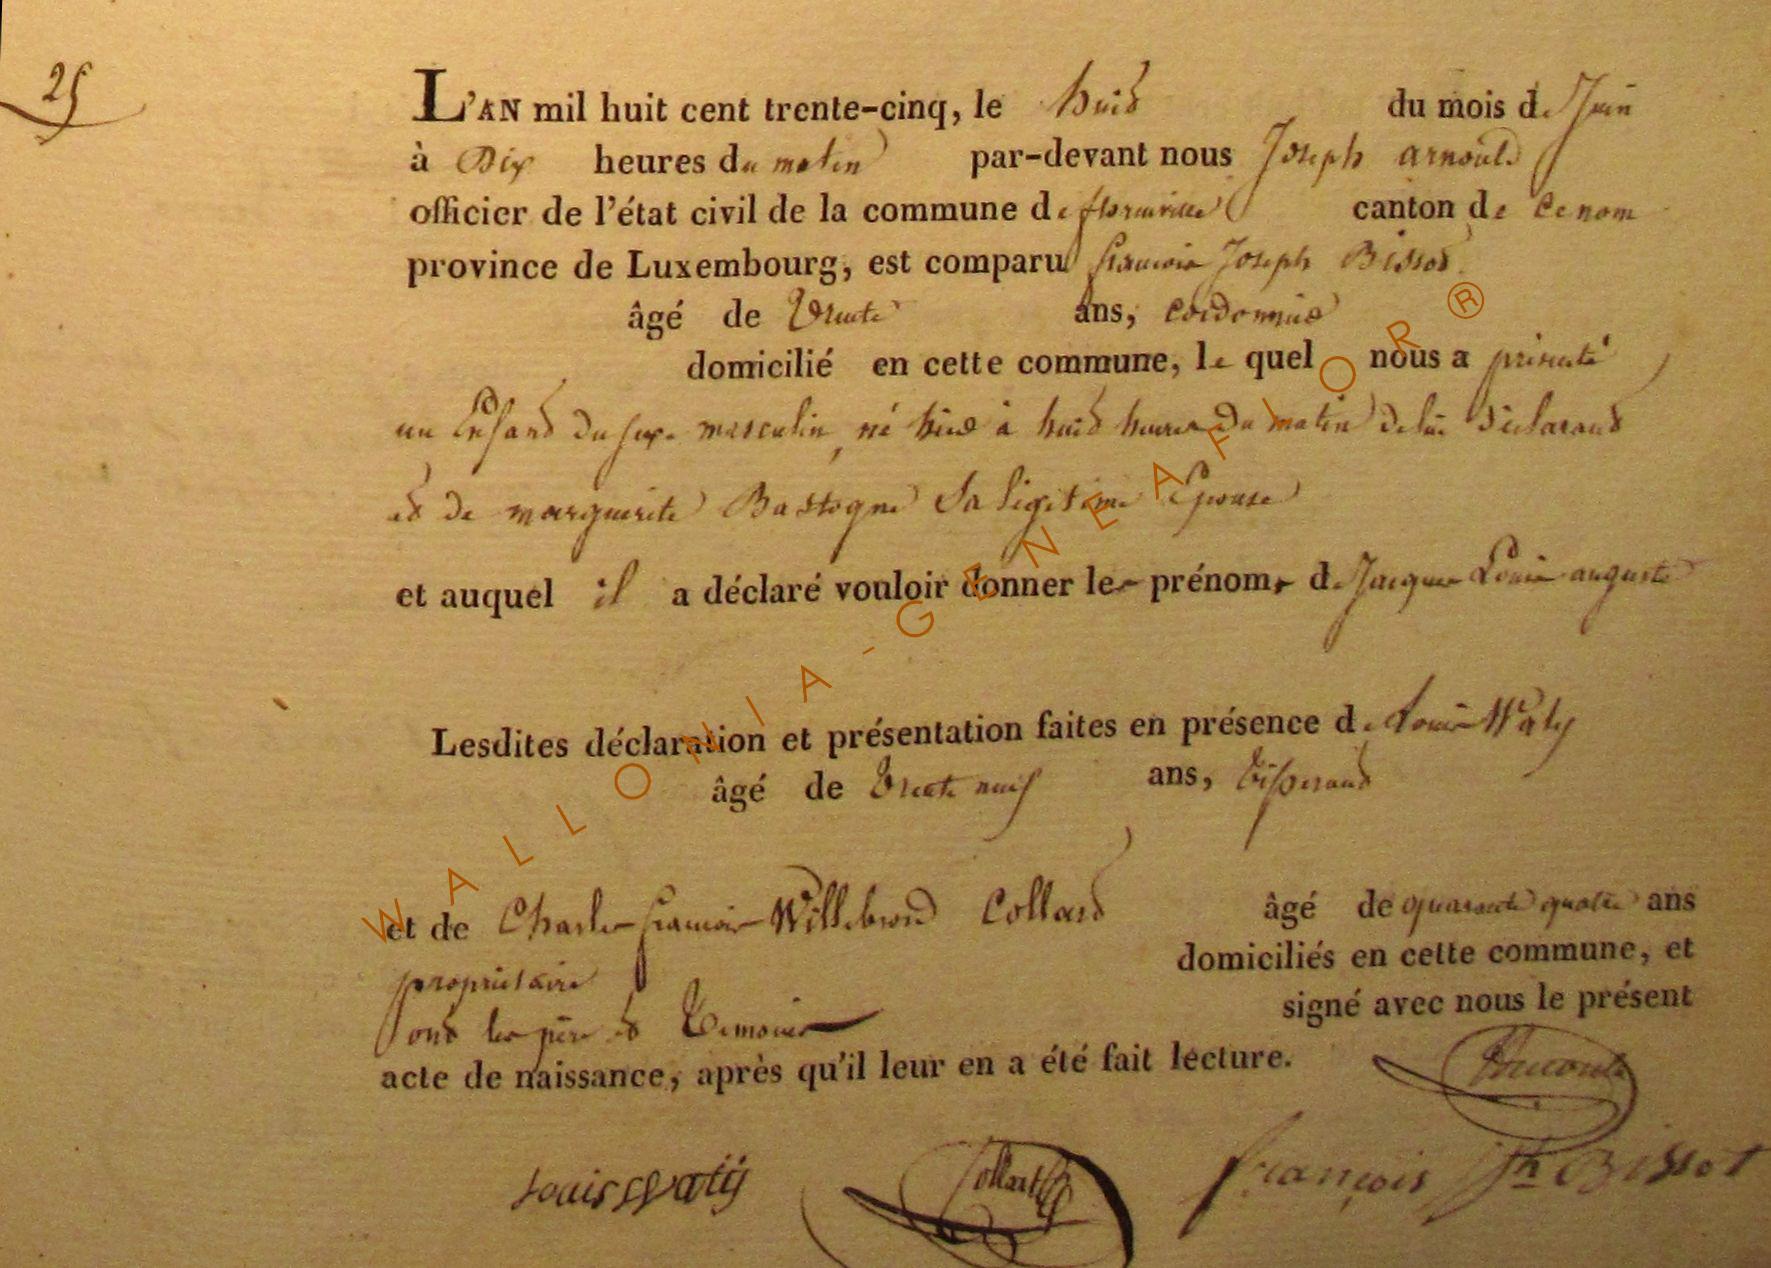 25
L'AN mil huit cent trente-cinq, le huit du mois de Juin
à Dix heures du matin par-devant nous Joseph arnould
officier de l'état civil de la commune de florenville canton de ce nom
province de Luxembourg, est comparu francois Joseph Bissot
âgé de trente ans, cordonnier
domicilié en cette commune, le quel nous a présenté
un Enfant du sexe masculin, né hier à huit heures du matin de lui déclarant
et de marguerite Bastogne Sa légitime Epouse
et auquel il a déclaré vouloir donner les prénoms de Jacques Louis auguste
Lesdites déclaration et présentation faites en présence de Louis Waty
âgé de trente neuf ans, tisserand
et de Charles francois Willebrord Collard âgé de quarante quatre ans
propriétaire domiciliés en cette commune, et
ont les père et témoins signé avec nous le présent
acte de naissance, après qu'il leur en a été fait lecture.
Louis Watÿ Collart françois Jh Bissot
WALLONIA-GENEAFLOR ®